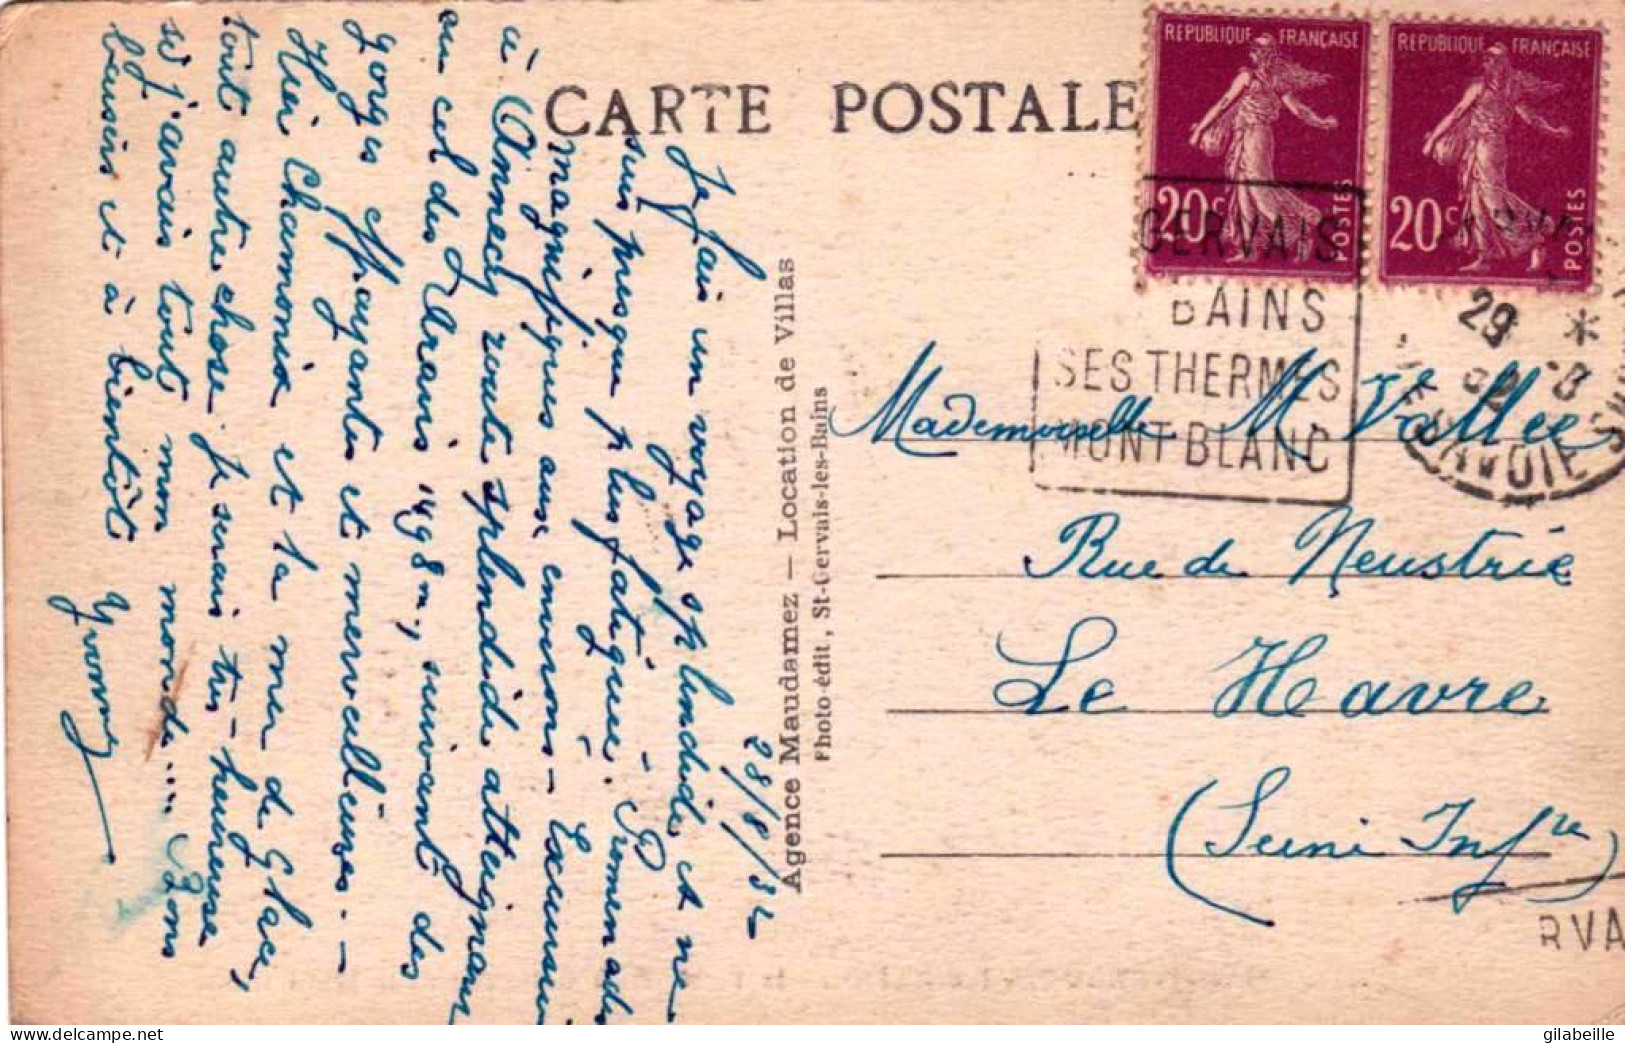 CARTE POSTALE
REPUBLIQUE FRANÇAISE
20c POSTES
REPUBLIQUE FRANÇAISE
20c POSTES
GERVAIS
BAINS
SES THERMES
MONT BLANC
29 * -8
32
SAVOIE
28/8/32
Je fais un voyage splendide et ne
suis presque plus fatiguée. Promenades
magnifiques aux environs - Excursion
à Annecy route splendide atteignant
au col des Aravis 1498m, suivant des
gorges effrayantes et merveilleuses. -
Hier Chamonix et la mer de Glace,
tout autre chose. je serais très-heureuse
si j'avais tout mon monde.... Bons
baisers et à bientôt Yvonne
Agence Maudamez — Location de Villas
Photo-édit, St-Gervais-les-Bains
Mademoiselle M. Vallée
Rue de Neustrie
Le Havre
(Seine Infre)
RVA
gilabeille